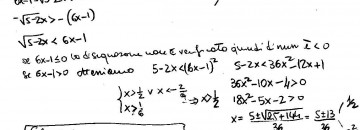 -√5-2x > -(6x-1)
√5-2x < 6x-1
se 6x-1≤0 la disequazione non è verificata quindi
se 6x-1>0 otteniamo 5-2x<(6x-1)² 5-2x<36x²-12x+1
36x²-10x-4>0
{x>1/2 ∨ x<-2/9 ⇒ x>1/2 18x²-5x-2>0
x>1/6 x= 5±√25+144/36 = 5±13/36